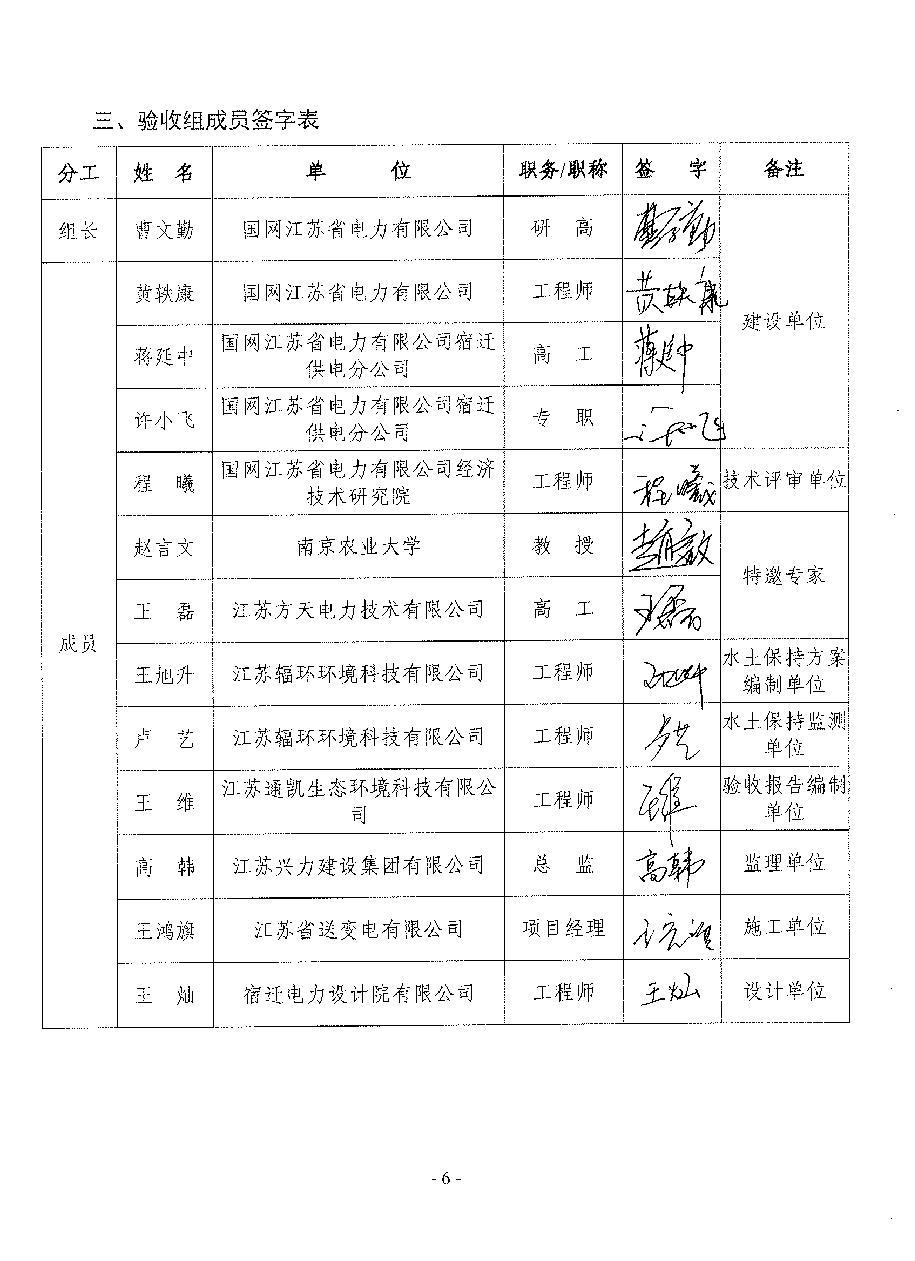 三、验收组成员签字表
分工 姓 名 单 位 职务/职称 签 字 备注
组长 曹文勤 国网江苏省电力有限公司 研 高 曹文勤
建设单位
成员
黄轶康 国网江苏省电力有限公司 工程师 黄轶康
蒋延中 国网江苏省电力有限公司宿迁
供电分公司 高 工 蒋延中
许小飞 国网江苏省电力有限公司宿迁
供电分公司 专 职 许小飞
程 曦 国网江苏省电力有限公司经济
技术研究院 工程师 程曦 技术评审单位
赵言文 南京农业大学 教 授 赵言文
特邀专家
王 磊 江苏方天电力技术有限公司 高 工 王磊
王旭升 江苏辐环环境科技有限公司 工程师 王旭升 水土保持方案
编制单位
卢 艺 江苏辐环环境科技有限公司 工程师 卢艺 水土保持监测
单位
王 维 江苏通凯生态环境科技有限公
司 工程师 王维 验收报告编制
单位
高 韩 江苏兴力建设集团有限公司 总 监 高韩 监理单位
王鸿旗 江苏省送变电有限公司 项目经理 王鸿旗 施工单位
王 灿 宿迁电力设计院有限公司 工程师 王灿 设计单位
- 6 -